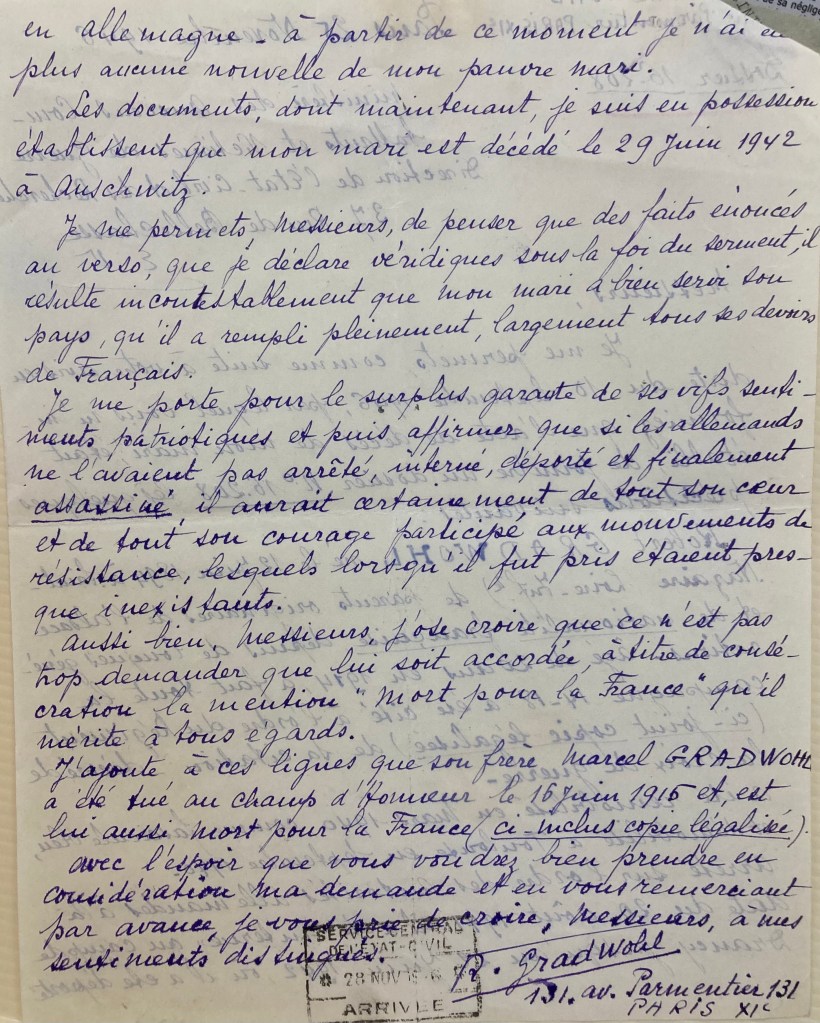 de sa néglige
en allemagne - à partir de ce moment je n'ai eu
plus aucune nouvelle de mon pauvre mari.
Les documents, dont maintenant, je suis en possession
établissent que mon mari est décédé le 29 Juin 1942
à Auschwitz.
Je me permets, Messieurs, de penser que des faits énoncés
au verso, que je déclare véridiques sous la foi du serment, il
résulte incontestablement que mon mari a bien servi son
pays, qu'il a rempli pleinement, largement tous ses devoirs
de Français.
Je me porte pour le surplus garante de ses vifs senti-
ments patriotiques et puis affirmer que si les allemands
ne l'avaient pas arrêté, interné, déporté et finalement
assassiné, il aurait certainement de tout son cœur
et de tout son courage participé aux mouvements de
résistance, lesquels lorsqu'il fut pris étaient pres-
que inexistants.
Aussi bien, Messieurs, j'ose croire que ce n'est pas
trop demander que lui soit accordée, à titre de consé-
cration la mention "Mort pour la France" qu'il
mérite à tous égards.
J'ajoute à ces lignes que son frère Marcel GRADWOHL
a été tué au champ d'Honneur le 16 Juin 1915 et, est
lui aussi mort pour la France (ci-inclus copie légalisée).
Avec l'espoir que vous voudrez bien prendre en
considération ma demande et en vous remerciant
par avance, je vous prie de croire, Messieurs, à mes
sentiments distingués.
R. Gradwohl
131. av. Parmentier 131
PARIS XIe
SERVICE CENTRAL
DE L'ÉTAT-CIVIL
28 NOV
ARRIVÉE